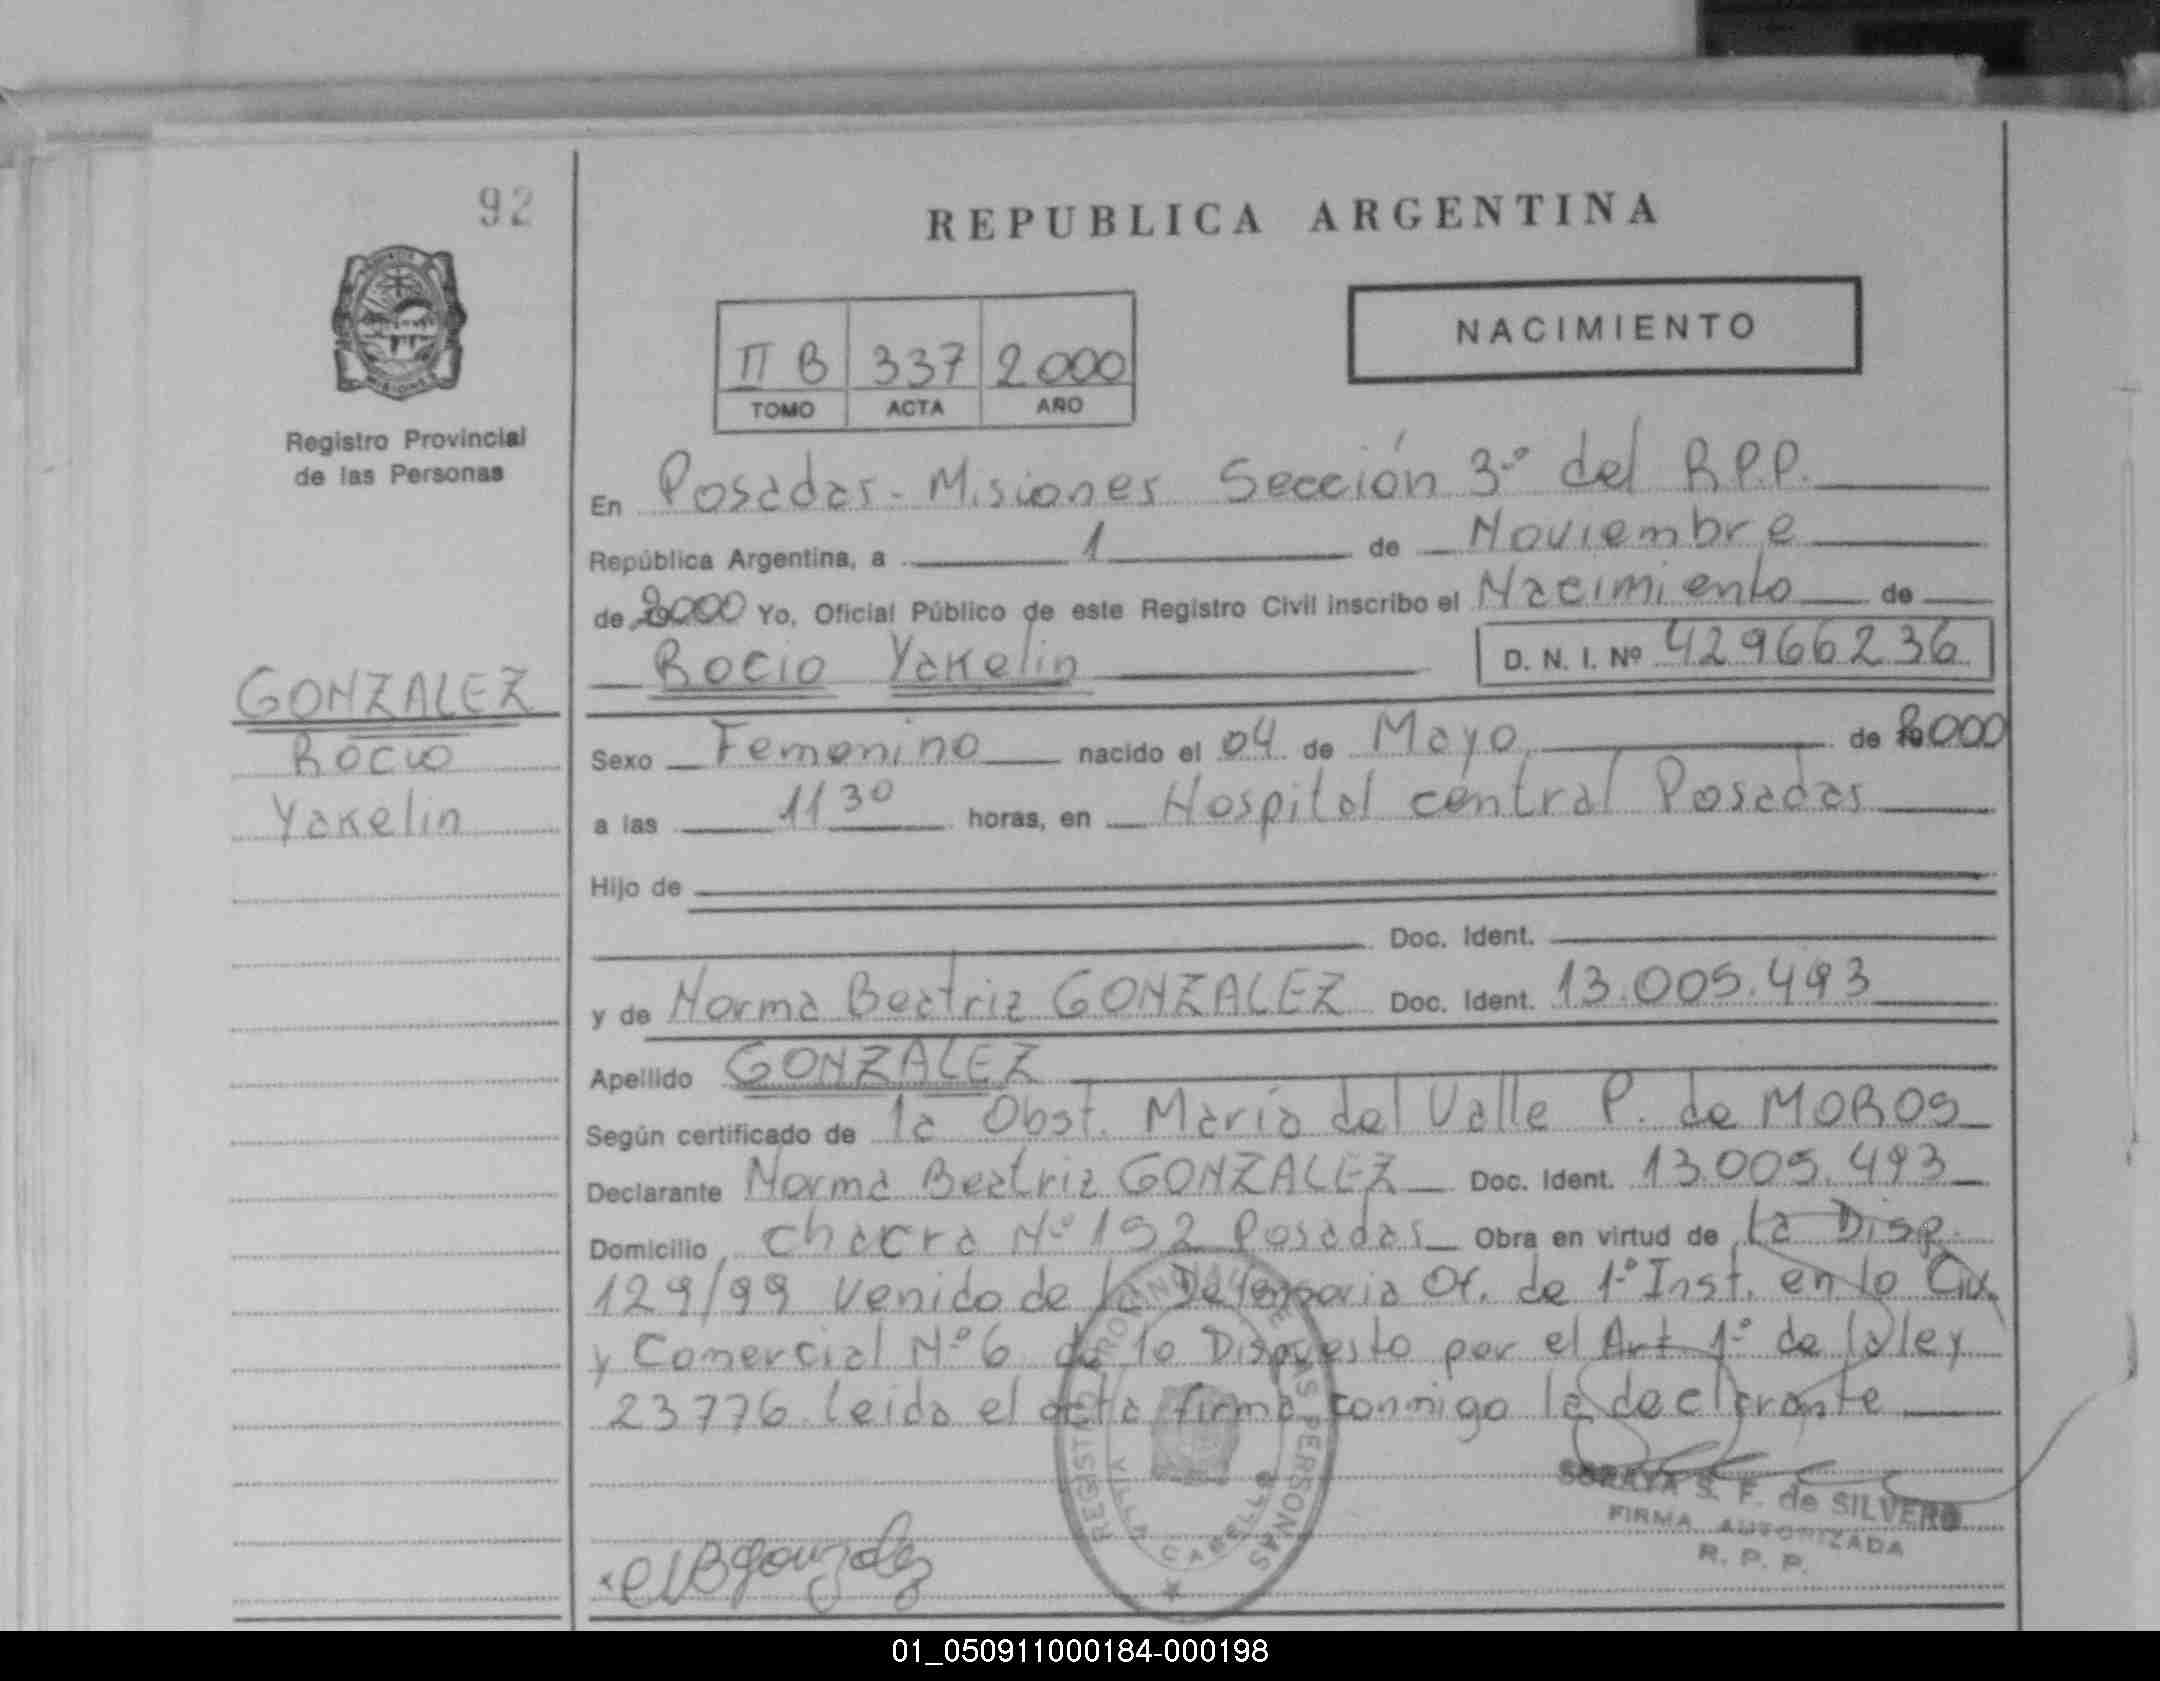 92
REPUBLICA ARGENTINA
NACIMIENTO
II B 337 2000
TOMO ACTA AÑO
Registro Provincial
de las Personas
En Posadas - Misiones Sección 3º del R.P.P.
República Argentina, a 1 de Noviembre
de 2000 Yo, Oficial Público de este Registro Civil inscribo el Nacimiento de
Rocio Yakelin D. N. I. Nº 42966236
GONZALEZ
Rocio
Yakelin
Sexo Femenino nacido el 04 de Mayo de 2000
a las 11 30 horas, en Hospital central Posadas
Hijo de
Doc. Ident.
y de Norma Beatriz GONZALEZ Doc. Ident. 13.005.493
Apellido GONZALEZ
Según certificado de la Obst. María del Valle P. de MOROS
Declarante Norma Beatriz GONZALEZ Doc. Ident. 13.005.493
Domicilio Chacra Nº 192 Posadas Obra en virtud de La Disp.
129/99 Venido de la Defensoria Of. de 1º Inst. en lo Civ.
y Comercial Nº 6 de lo Dispuesto por el Art 1º de la ley
23776 leida el acta firma conmigo la declarante
REGISTRO PROVINCIAL DE LAS PERSONAS
VILLA CABELLO
SORAYA S. F. de SILVERO
FIRMA AUTORIZADA
R. P. P.
01_050911000184-000198